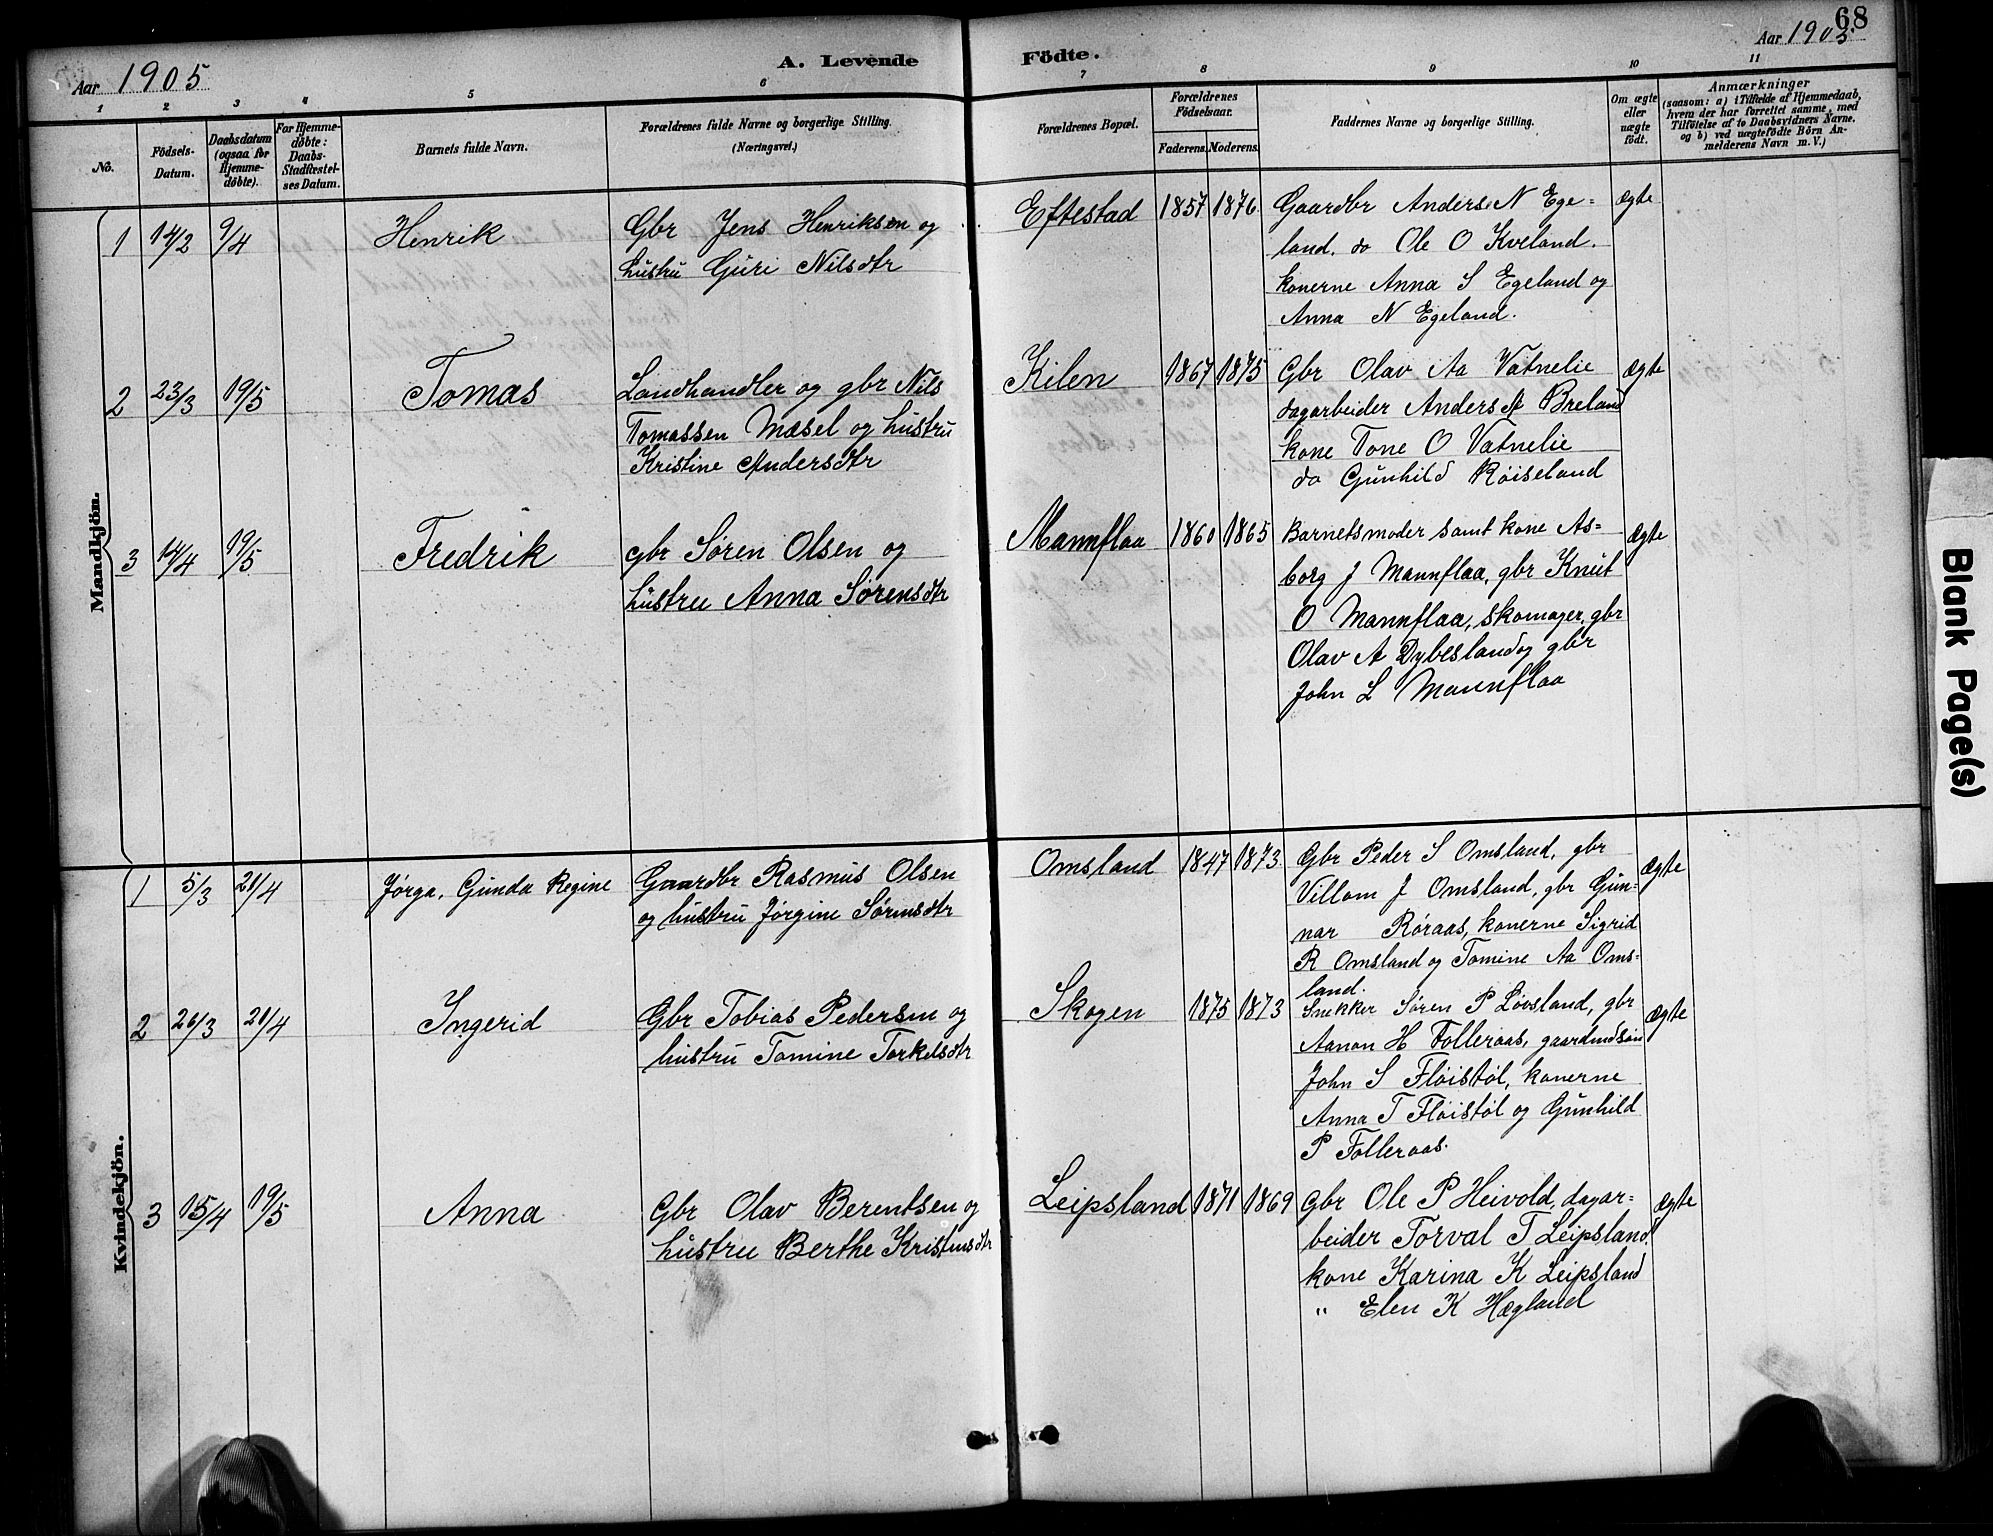 68
Aar 1905
A. Levende Födte.
Aar 1905
1 2 3 4 5 6 7 8 9 10 11
No.
Födsels-
Datum.
Daabsdatum
(ogsaa for
Hjemme-
döbte).
For Hjemme-
döbte:
Daabs-
Stadfæstel-
ses Datum.
Barnets fulde Navn.
Forældrenes fulde Navne og borgerlige Stilling.
(Næringsvei.)
Forældrenes Bopæl.
Forældrenes
Födselsaar.
Faderens. Moderens.
Faddernes Navne og borgerlige Stilling.
Om ægte
eller
uægte
födt.
Anmærkninger
(saasom: a) i Tilfælde af Hjemmedaab,
hvem der har forrettet samme, med
Tilföielse af to Daabsvidners Navne.
og b) ved uægtefödte Börn An-
melderens Navn m. V.)
Mandkjön.
1 14/2 9/4 Henrik
Gbr Jens Henriksen og
hustru Guri Nilsdtr
Eftestad 1857 1876
Gaardbr Anders N Ege=
land. do Ole O Kveland.
konerne Anna S Egeland og
Anna N Egeland.
ægte
2 23/3 19/5 Tomas
Landhandler og gbr Nils
Tomassen Mæsel og hustru
Kristine Andersdtr
Kilen 1867 1875
Gbr Olav Aa Vatnelie
dagarbeider Anders A Breland
kone Tone O Vatnelie
do Gunhild Røiseland
ægte
3 14/4 19/5 Fredrik
gbr Søren Olsen og
hustru Anna Sørensdtr
Mannflaa 1860 1865
Barnetsmoder samt kone As=
borg J Mannflaa, gbr Knut
O Mannflaa, skomager, gbr
Olav A Dybesland og gbr
John L Mannflaa
ægte
Kvindekjön.
1 5/3 21/4 Jørga. Gunda Regine
Gaardbr Rasmus Olsen
og hustru Jørgine Sørensdtr
Omsland 1847 1873
Gbr Peder S Omsland, gbr
Villom J Omsland, gbr Gun=
nar Røraas, konerne Sigrid
R Omsland og Tomine Aa Oms=
land.
ægte
2 26/3 21/4 Ingerid
Gbr Tobias Pedersen og
hustru Tomine Torkelsdtr
Skogen 1875 1873
Snekker Søren P Løvsland, gbr
Aanon H Folleraas, gaardmdsøn
John S Fløistøl, konerne
Anna T Fløistøl og Gunhild
P Folleraas.
ægte
3 15/4 19/5 Anna
Gbr Olav Berentsen og
hustru Berthe Kristensdtr
Leipsland 1871 1869
Gbr Ole P Heivold, dagar=
beider Torval T Leipsland.
kone Karina K Leipsland
" Elen K Hægland
ægte
Blank Page(s)